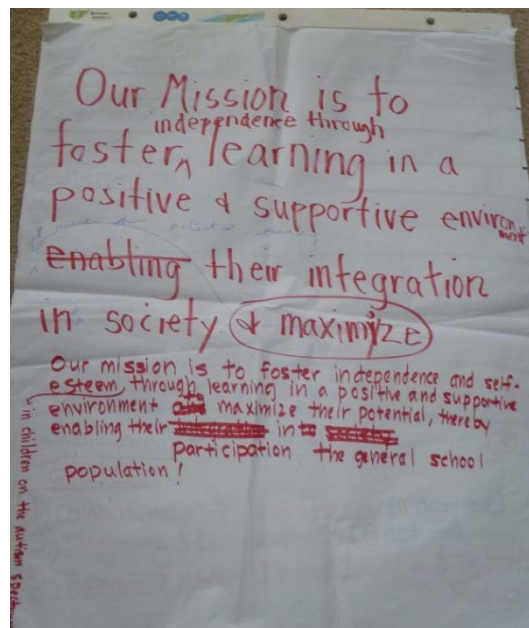 Our Mission is to
independence through
foster, ^ learning in a
positive & supportive environ
ment
enabling their integration
in society & maximize
Our mission is to foster independence and self-
esteem, through learning in a positive and supportive
environment to maximize their potential, thereby
enabling their integration into society
participation the general school
population!
in children on the autism spect